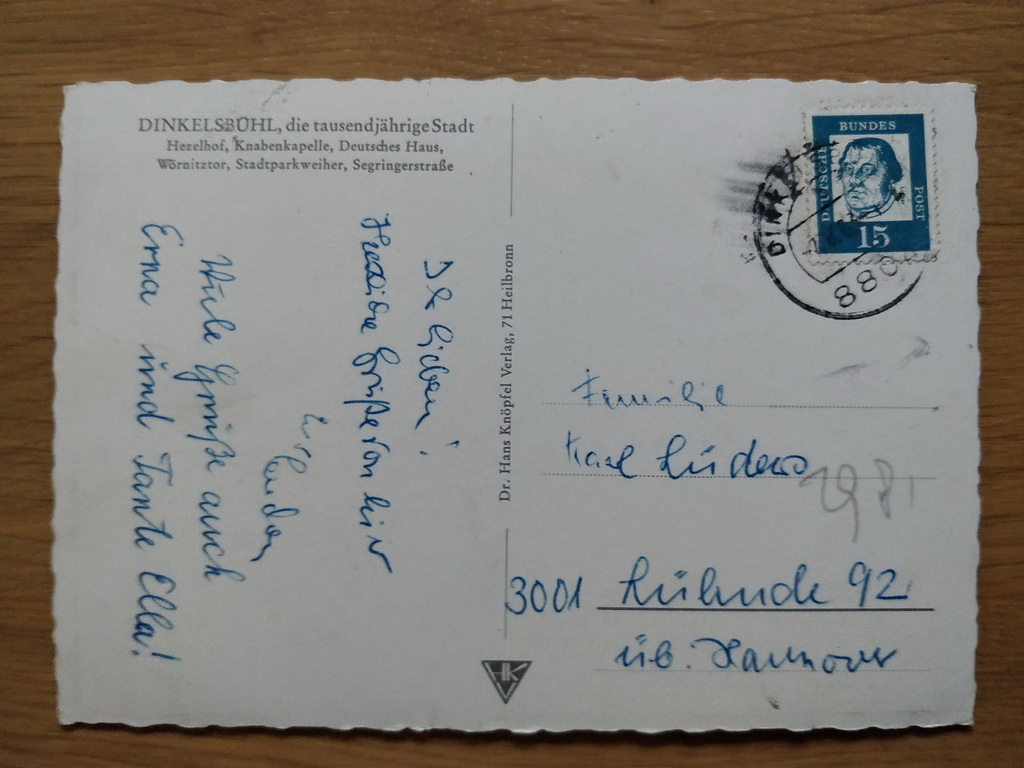 DINKELSBÜHL, die tausendjährige Stadt
Hezelhof, Knabenkapelle, Deutsches Haus,
Wörnitztor, Stadtparkweiher, Segringerstraße
Ihr Lieben!
Grüße von hier
Viele Grüße auch
Erna und Tante Ella!
Dr. Hans Knöpfel Verlag, 71 Heilbronn
HK
DEUTSCHE
BUNDES
POST
15
880
Familie
Karl Lüders
3001 92
üb. Hannover